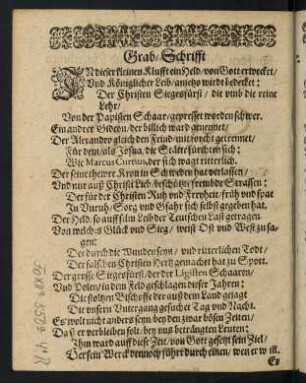 Grab-Schrifft
IN dieser kleinen Klufft ein Held / von Gott erwecket /
Und Königlicher Leib / anjetzo wirdt bedecket:
Der Christen Siegesfürst / die umb die reine
Lehr /
Von der Papisten Schaar / gepresset worden schwer.
Ein ander Gideon / der billich ward genennet /
Der Alexandro gleich den Feind / mit forcht getrennet /
Für dem / als Josua, die Städte fürchten sich:
Wie Marcus Curtius, der sich wagt ritterlich.
Der seine thewre Kron in Schweden hat verlassen /
Und nur auff Christi Lieb / beschützt frembde Strassen:
Der für der Christen Ruh und Freyheit / früh und spat
In Unruh / Sorg und Gfahr sich selbst gegeben hat.
Der Held / so auff sein Leib der Teutschen Last getragen
Von welchs Glück und Sieg / weist Ost und West zu sagen:
Der durch die Wunden seyn / und ritterlichen Todt /
Der falschen Christen Herd gemachet hat zu Spott.
Der grosse Siegesfürst / der der Ligisten Schaaren /
Und Polen / in dem Feld geschlagen dieser Jahren:
Die stoltzen Bischoffe der auß dem Land gejagt
Die unsern Untergang gesuchet Tag und Nacht.
Es wolt nicht anders seyn / bey den zwar bösen Zeiten /
Daß er verbleiben solt / bey uns betrangten Leuten:
Ihm ward auff diese Zeit / von Gott gesetzt sein Ziel /
Der sein Werck dennoch führt durch einen / wen er will.
Er